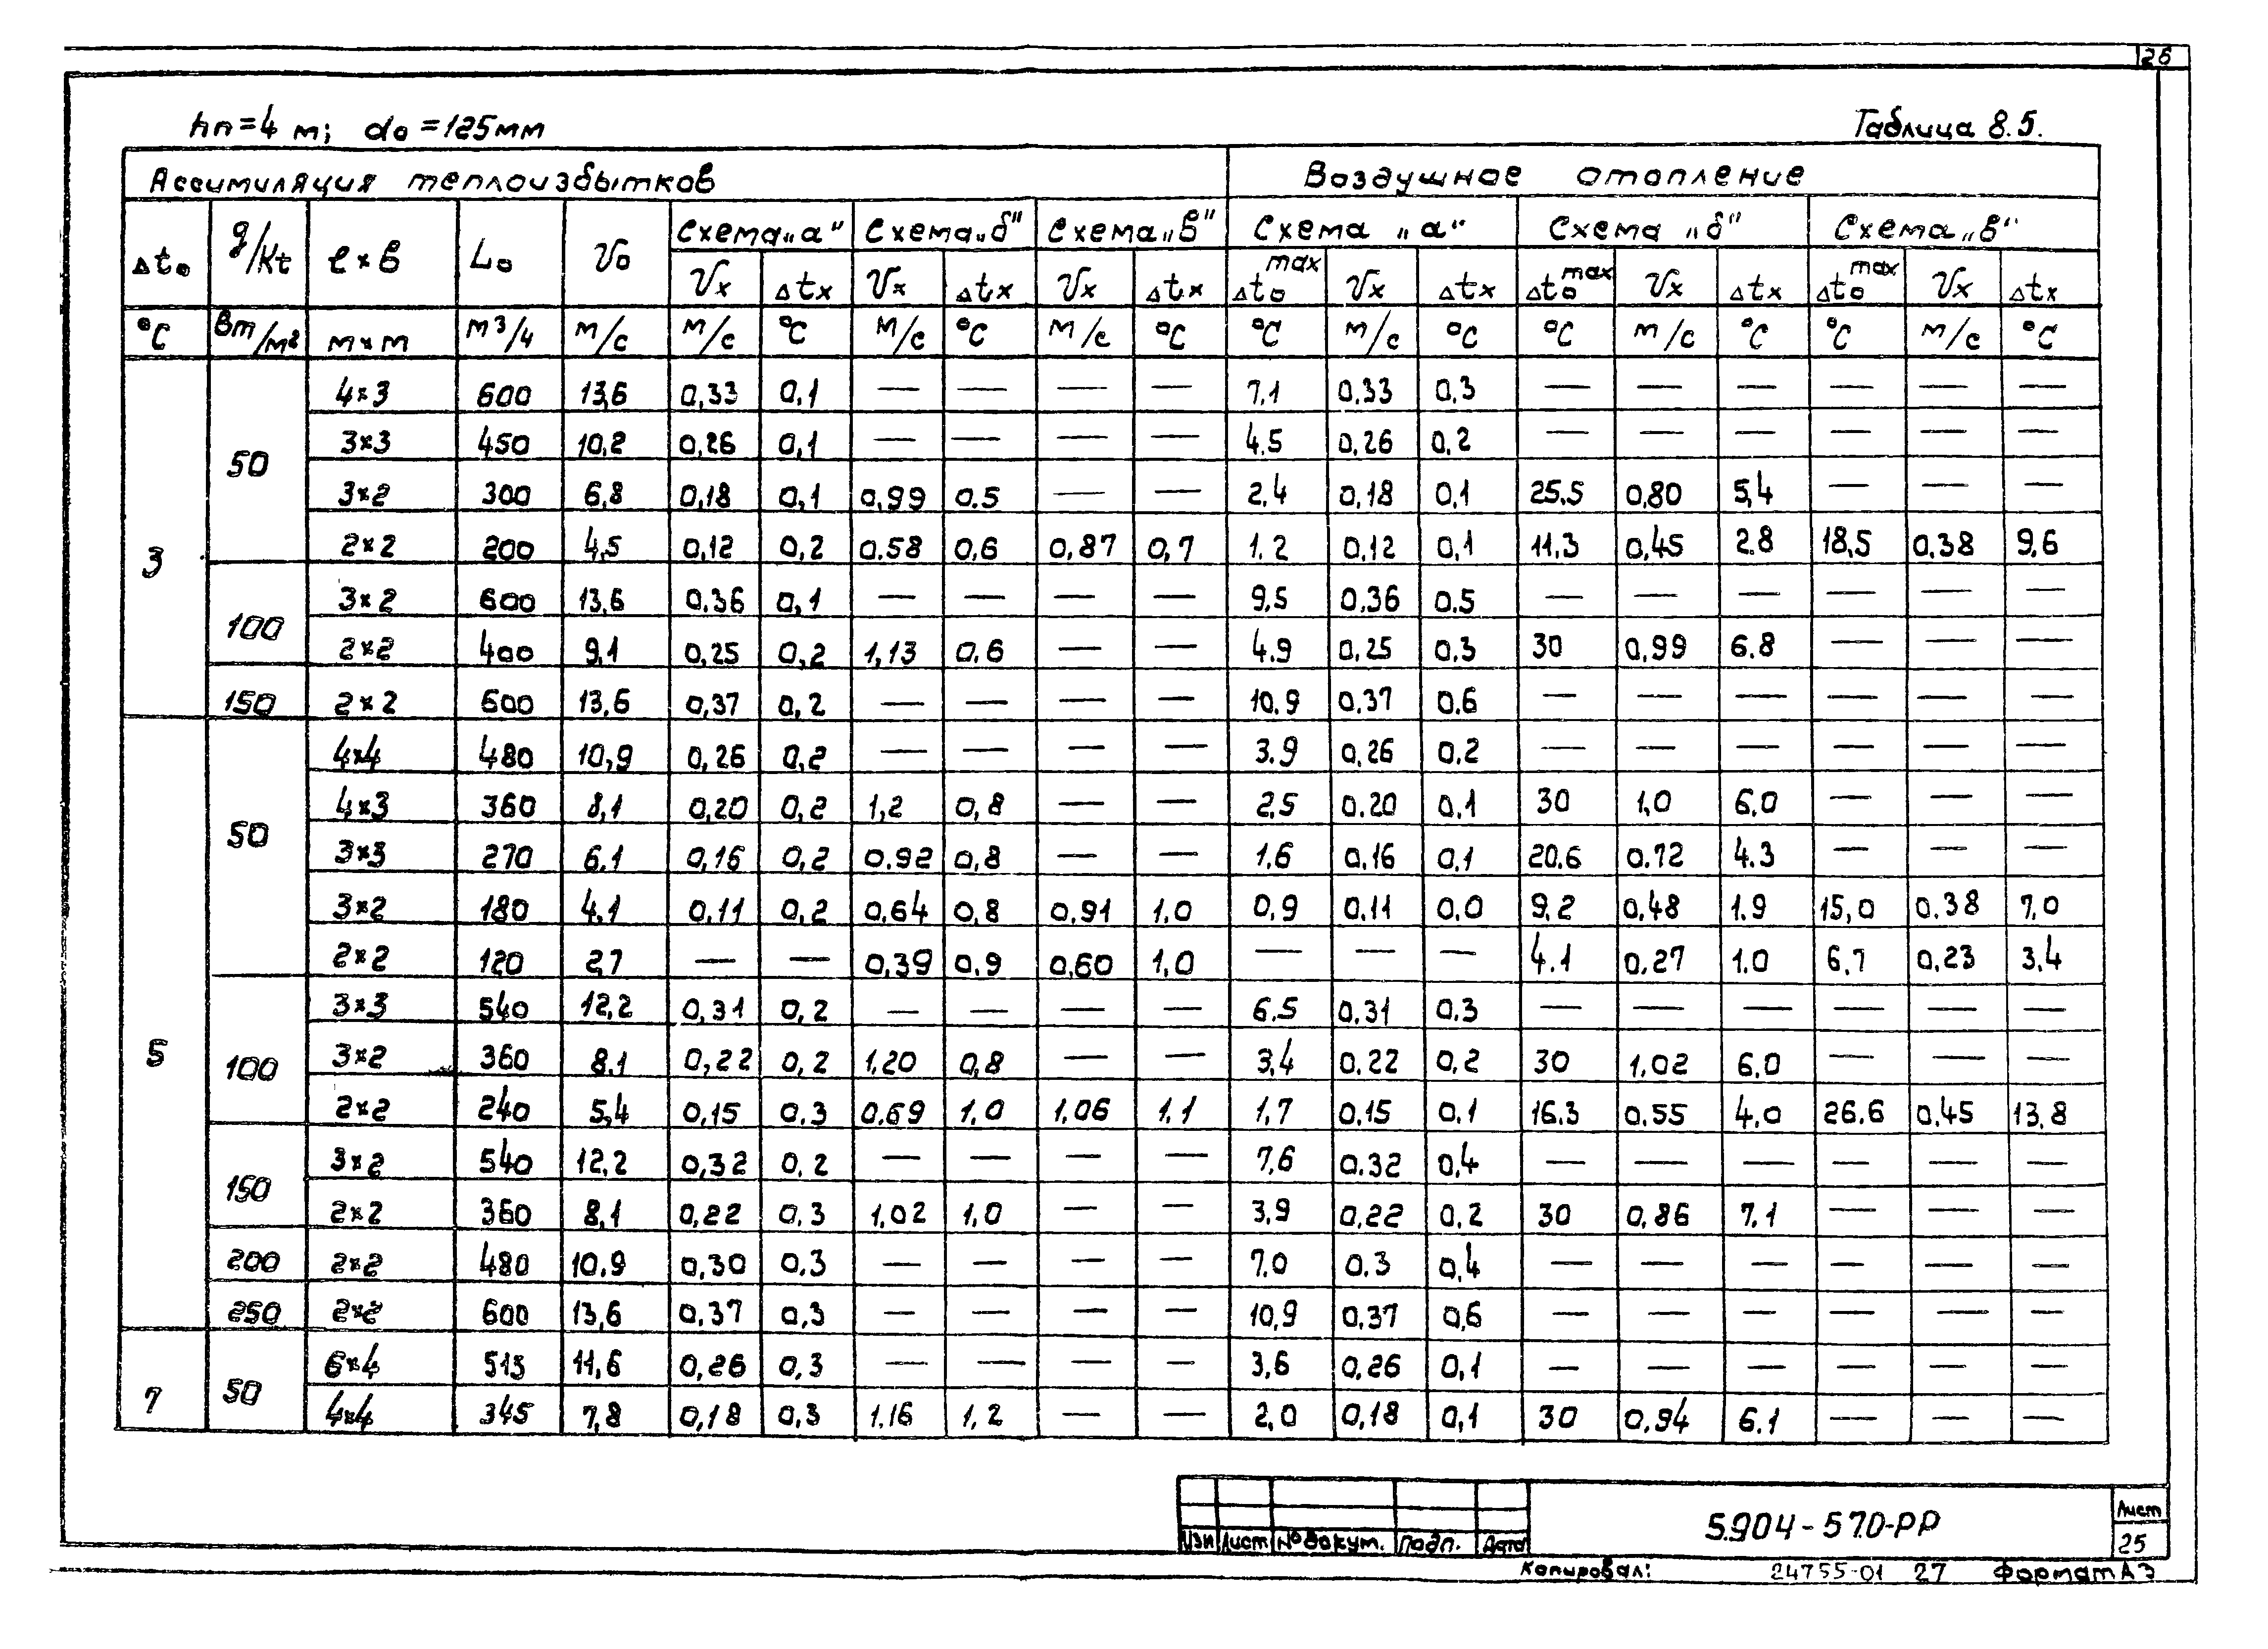 26
hп=4 м; do=125мм
Таблица 8.5.
Ассимиляция теплоизбытков Воздушное отопление
Δto q/Kt в×в Lo Vo Схема „а" Схема „б" Схема „в" Схема „а" Схема „б" Схема „в"
Vx Δtx Vx Δtx Vx Δtx Δto max Vx Δtx Δto max Vx Δtx Δto max Vx Δtx
°C Вт/м² м×м м³/ч м/с м/с °C м/с °C м/с °C °C м/с °C °C м/с °C °C м/с °C
3 50 4×3 600 13,6 0,33 0,1 — — — — 7,1 0,33 0,3 — — — — — —
3×3 450 10,2 0,26 0,1 — — — — 4,5 0,26 0,2 — — — — — —
3×2 300 6,8 0,18 0,1 0,99 0.5 — — 2,4 0,18 0,1 25.5 0,80 5,4 — — —
2×2 200 4,5 0,12 0,2 0.58 0,6 0,87 0,7 1.2 0,12 0,1 11,3 0,45 2.8 18,5 0,38 9,6
100 3×2 600 13,6 0.36 0,1 — — — — 9,5 0.36 0.5 — — — — — —
2×2 400 9,1 0,25 0,2 1,13 0.6 — — 4.9 0,25 0.3 30 0,99 6.8 — — —
150 2×2 600 13,6 0,37 0,2 — — — — 10.9 0.37 0.6 — — — — — —
5 50 4×4 480 10,9 0,26 0,2 — — — — 3.9 0,26 0.2 — — — — — —
4×3 360 8,1 0,20 0,2 1,2 0,8 — — 2,5 0.20 0,1 30 1,0 6,0 — — —
3×3 270 6.1 0,16 0,2 0.92 0,8 — — 1,6 0.16 0,1 20.6 0.72 4.3 — — —
3×2 180 4.1 0,11 0,2 0,64 0,8 0,91 1.0 0,9 0.11 0.0 9,2 0,48 1.9 15,0 0.38 7,0
2×2 120 2,7 — — 0,39 0,9 0,60 1,0 — — — 4.1 0,27 1.0 6,7 0,23 3,4
100 3×3 540 12,2 0,31 0,2 — — — — 6.5 0.31 0.3 — — — — — —
3×2 360 8.1 0,22 0,2 1,20 0,8 — — 3,4 0.22 0,2 30 1,02 6,0 — — —
2×2 240 5,4 0,15 0.3 0,69 1,0 1,06 1,1 1,7 0,15 0,1 16.3 0.55 4,0 26.6 0,45 13,8
150 3×2 540 12,2 0,32 0,2 — — — — 7,6 0.32 0,4 — — — — — —
2×2 360 8,1 0,22 0,3 1,02 1,0 — — 3,9 0,22 0,2 30 0,86 7,1 — — —
200 2×2 480 10.9 0,30 0.3 — — — — 7,0 0.3 0,4 — — — — — —
250 2×2 600 13,6 0.37 0,3 — — — — 10,9 0.37 0,6 — — — — — —
7 50 6×4 513 11,6 0,26 0,3 — — — — 3,6 0,26 0,1 — — — — — —
4×4 345 7,8 0,18 0,3 1.16 1,2 — — 2,0 0,18 0,1 30 0,94 6.1 — — —
Изм Лист №докум. Подп. Дата
5.904-57.0-РР
Лист
25
Копировал: 24755-01 27 Формат А3